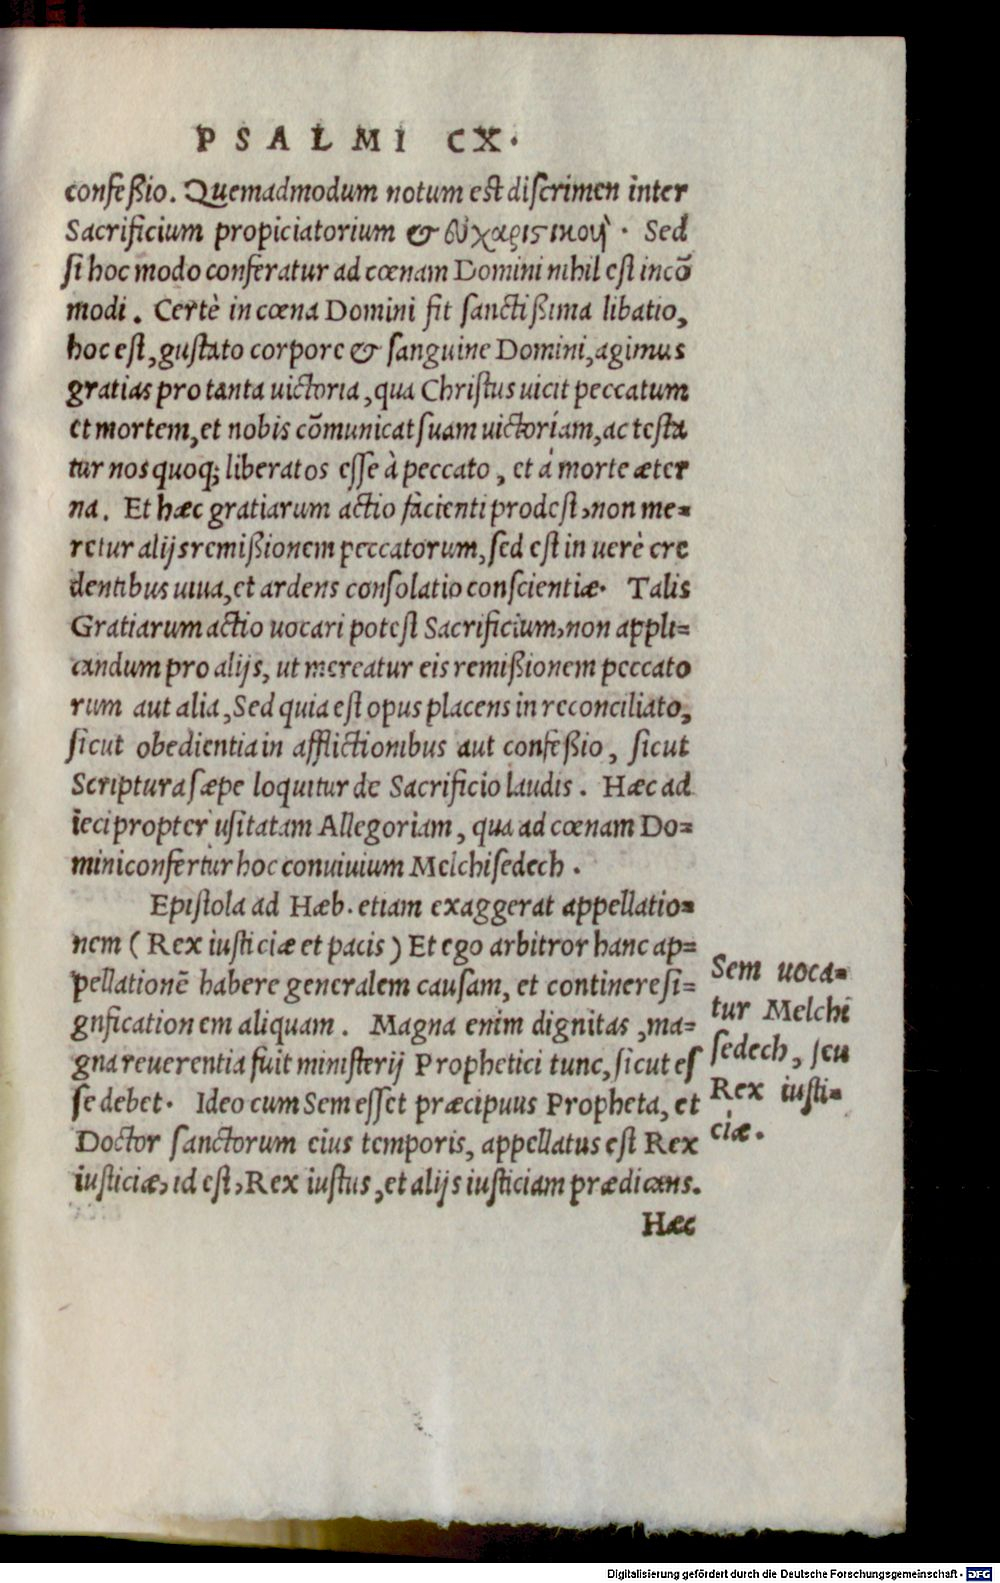 PSALMI CX.
confeßio. Quemadmodum notum est discrimen inter
Sacrificium propiciatorium & εὐχαριστικοῦ. Sed
si hoc modo conferatur ad cœnam Domini nihil est incō
modi. Certè in cœna Domini fit sanctißima libatio,
hoc est, gustato corpore & sanguine Domini, agimus
gratias pro tanta uictoria, qua Christus uicit peccatum
et mortem, et nobis cōmunicat suam uictoriam, ac testa
tur nos quoq; liberatos esse à peccato, et á morte æter
na. Et hæc gratiarum actio facienti prodest, non me=
retur alijs remißionem peccatorum, sed est in uerè cre
dentibus uiua, et ardens consolatio conscientiæ. Talis
Gratiarum actio uocari potest Sacrificium, non appli=
candum pro alijs, ut mereatur eis remißionem peccato
rum aut alia, Sed quia est opus placens in reconciliato,
sicut obedientia in afflictionibus aut confeßio, sicut
Scriptura sæpe loquitur de Sacrificio laudis. Hæc ad
ieci propter usitatam Allegoriam, qua ad cœnam Do=
mini confertur hoc conuiuium Melchisedech.
Epistola ad Hæb. etiam exaggerat appellatio=
nem (Rex iusticiæ et pacis) Et ego arbitror hanc ap=
pellationē habere generalem causam, et continere si=
gnification em aliquam. Magna enim dignitas, ma=
gna reuerentia fuit ministerij Prophetici tunc, sicut es
se debet. Ideo cum Sem esset præcipuus Propheta, et
Doctor sanctorum eius temporis, appellatus est Rex
iusticiæ, id est, Rex iustus, et alijs iusticiam prædicans.
Hæc
Sem uoca=
tur Melchi
sedech, seu
Rex iusti=
ciæ.
Digitalisierung gefördert durch die Deutsche Forschungsgemeinschaft - DFG